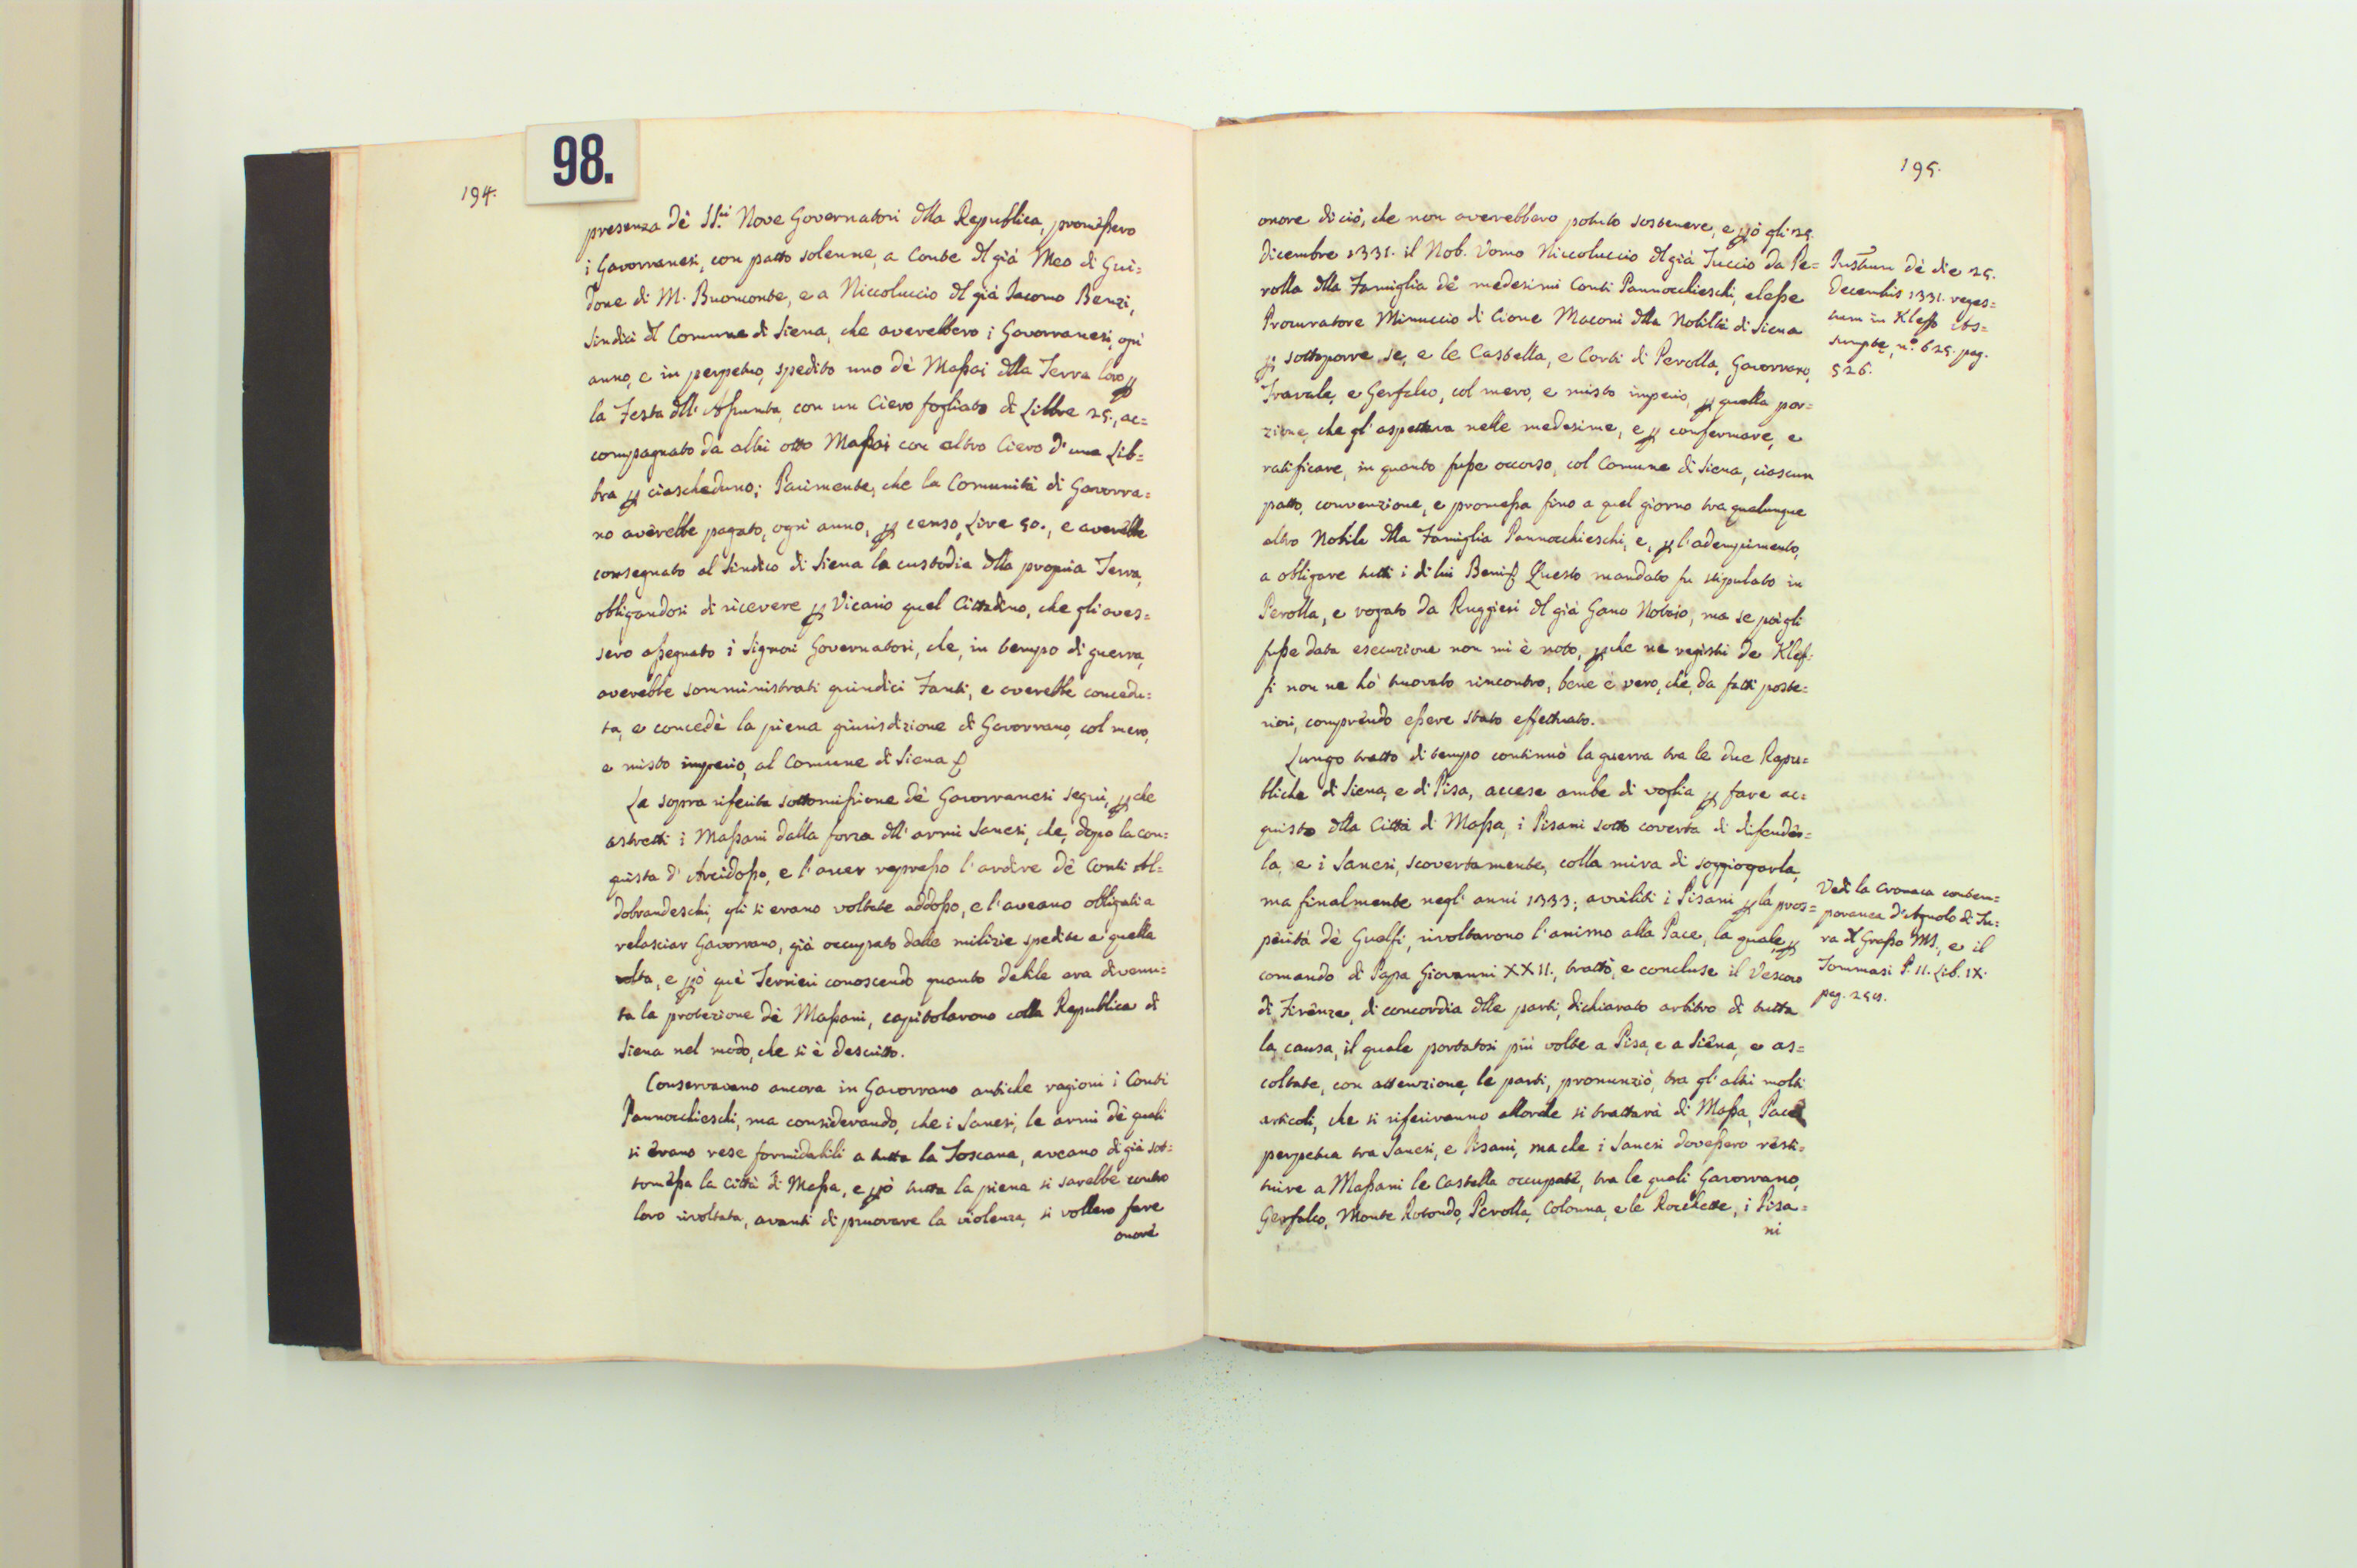 98.
194.
presenza dè SS.ri Nove Governatori dlla Republica, promeßero
i Gavorranesi, con patto solenne, a Conte dl già Meo di Gui=
done di M. Buonconte, e a Niccoluccio dl già Iacomo Benzi,
Sindici dl Comune di Siena, che averebbero i Gavorranesi, ogni
anno, e in perpetuo, spedito uno dè Maßai dlla Terra loro p
la Festa dll' Aßunta, con un Ciero fogliato di Libbre 25., ac=
compagnato da altri otto Maßai con altro Ciero d'una Lib=
bra p ciascheduno; Parimente, che la Comunità di Gavorra=
no averebbe pagato, ogni anno, p censo, Lire 50., e averebbe
consegnato al Sindico di Siena la custodia dlla propria Terra,
obligandosi di ricevere p Vicario quel Cittadino, che gli aves=
sero aßegnato i Signori Governatori, che, in tempo di guerra,
averebbe somministrati quindici Fanti, e averebbe concedu=
ta, e concedè la piena giurisdizione di Gavorrano, col mero,
e misto imperio, al Comune di Siena &
La sopra riferita sottomißione dè Gavorranesi seguì, pche
astretti i Maßani dalla forza dll' armi Sanesi, che, dopo la con=
quista d' Arcidoßo, e l' aver represso l' ardire dè Conti Al=
dobrandeschi, gli si erano voltate addoßo, e l' aveano obligati a
relasciar Gavorrano, già occupato dalle milizie spedite a quella
volta, e pò què Terrieri conoscendo quanto debile era divenu=
ta la protezione dè Maßani, capitolarono colla Republica di
Siena nel modo, che si è descritto.
Conservavano ancora in Gavorrano antiche ragioni i Conti
Pannocchieschi, ma considerando, che i Sanesi, le armi dè quali
si erano rese formidabili a tutta la Toscana, aveano di già sot=
tomeßa la Città di Maßa, e pò tutta la piena si sarebbe contro
loro rivoltata, avanti di pruovare la violenza, si vollero fare
onore
195.
onore di ciò, che non averebbero potuto sostenere, e pò gli 25.
Dicembre 1331. il Nob. Uomo Niccoluccio dl già Tuccio da Pe=
rolla dlla Famiglia dè medesimi Conti Pannocchieschi, eleße
Procuratore Minuccio di Cione Maconi dlla Nobiltà di Siena
p sottoporre se, e le Castella, e Corti di Perolla, Gavorrano,
Travale, e Gerfalco, col mero, e misto imperio, p quella por=
zione, che gl' aspettava nelle medesime, e p confermare, e
ratificare, in quanto fuße occorso, col Comune di Siena, ciascun
patto, convenzione, e promeßa fino a quel giorno tra qualunque
altro Nobile dlla Famiglia Pannocchieschi, e, p l' adempimento,
a obligare tutti i di lui Beni & Questo mandato fu stipulato in
Perolla, e rogato da Ruggieri dl già Gano Notaio, ma se poi gli
fuße data esecuzione non mi è noto, pche ne registri de Klef=
fi non ne hò truovato rincontro, bene è vero, che, da fatti poste=
riori, comprendo eßere stato effettuato.
Lungo tratto di tempo continuò la guerra tra le due Repu=
bliche di Siena, e di Pisa, accese ambe di voglia p fare ac=
quisto dlla Città di Maßa, i Pisani sotto coverta di difender=
la, e i Sanesi, scovertamente, colla mira di soggiogarla,
ma finalmente negl' anni 1333; avviliti i Pisani p la pros=
perità dè Guelfi, rivoltarono l' animo alla Pace, la quale, p
comando di Papa Giovanni XXII., trattò, e concluse il Vescovo
di Firenze, di concordia dlle parti, dichiarato arbitro di tutta
la causa, il quale portatosi più volte a Pisa, e a Siena, e as=
coltate, con attenzione, le parti, pronunziò, tra gl' altri molti
articoli, che si riferiranno allorche si trattarà di Maßa, Pace
perpetua tra Sanesi, e Pisani, ma che i Sanesi doveßero resti=
tuire a Maßani le Castella occupate, tra le quali Gavorrano,
Gerfalco, Monte Rotondo, Perolla, Colonna, e le Rocchette, i Pisa=
ni
Instrum dè die 25.
Decembris 1331. reges=
trum in Kleffo As=
sumptę, n.º 625. pag.
526.
Vedi la Cronaca contem=
poranea d'Agnolo di Tu=
ra dl Graßo MS., e il
Tommasi P. II. Lib. IX.